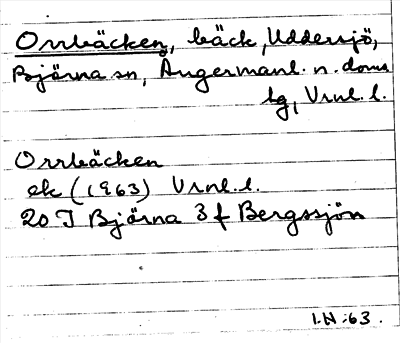 Orrbäcken, bäck, Uddersjö,
Björna sn, Ångermanl. n. doms
lg, Vrnl. l.
Orrbäcken
ek (1963) Vrnl. l.
20 J Björna 3 f Bergssjön
I.N:63.